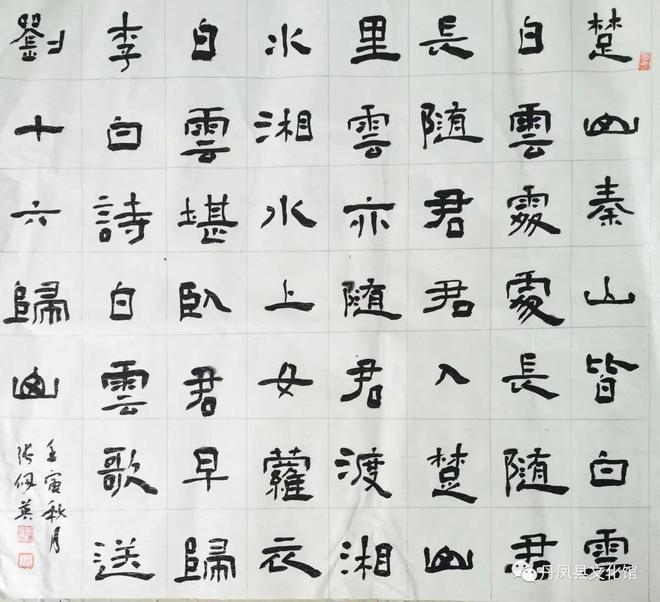 楚山秦山皆白雲
白雲處處長随君
長随君君入楚山
里雲亦随君渡湘
水湘水上女蘿衣
白雲堪臥君早歸
李白詩白雲歌送
劉十六歸山
壬寅秋月
張佩英
丹凤县文化馆